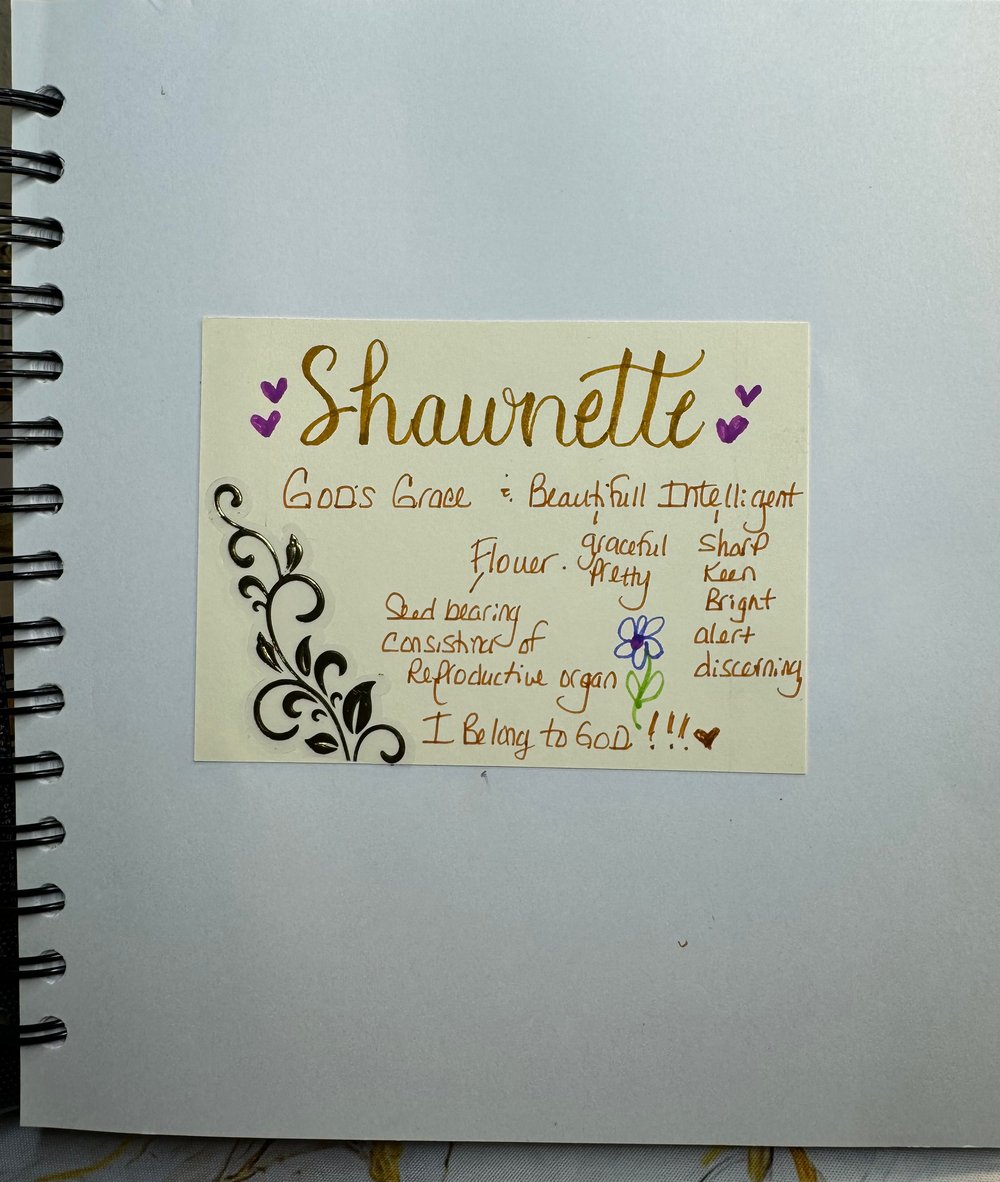 Shawnette
GOD'S Grace : Beautifull Intelligent
graceful Sharp
Flower. Pretty Keen
Seed bearing Bright
Consisting of alert
Reproductive organ discerning
I Belong to GOD !!!